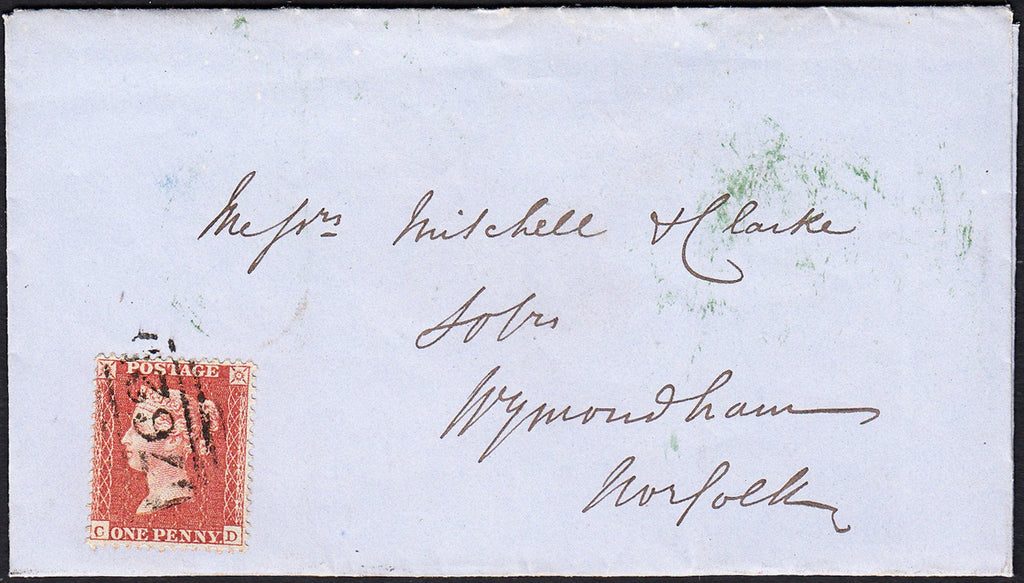 Messrs Mitchell & Clarke
Solrs
Wymondham
Norfolk
762
POSTAGE
C ONE PENNY D